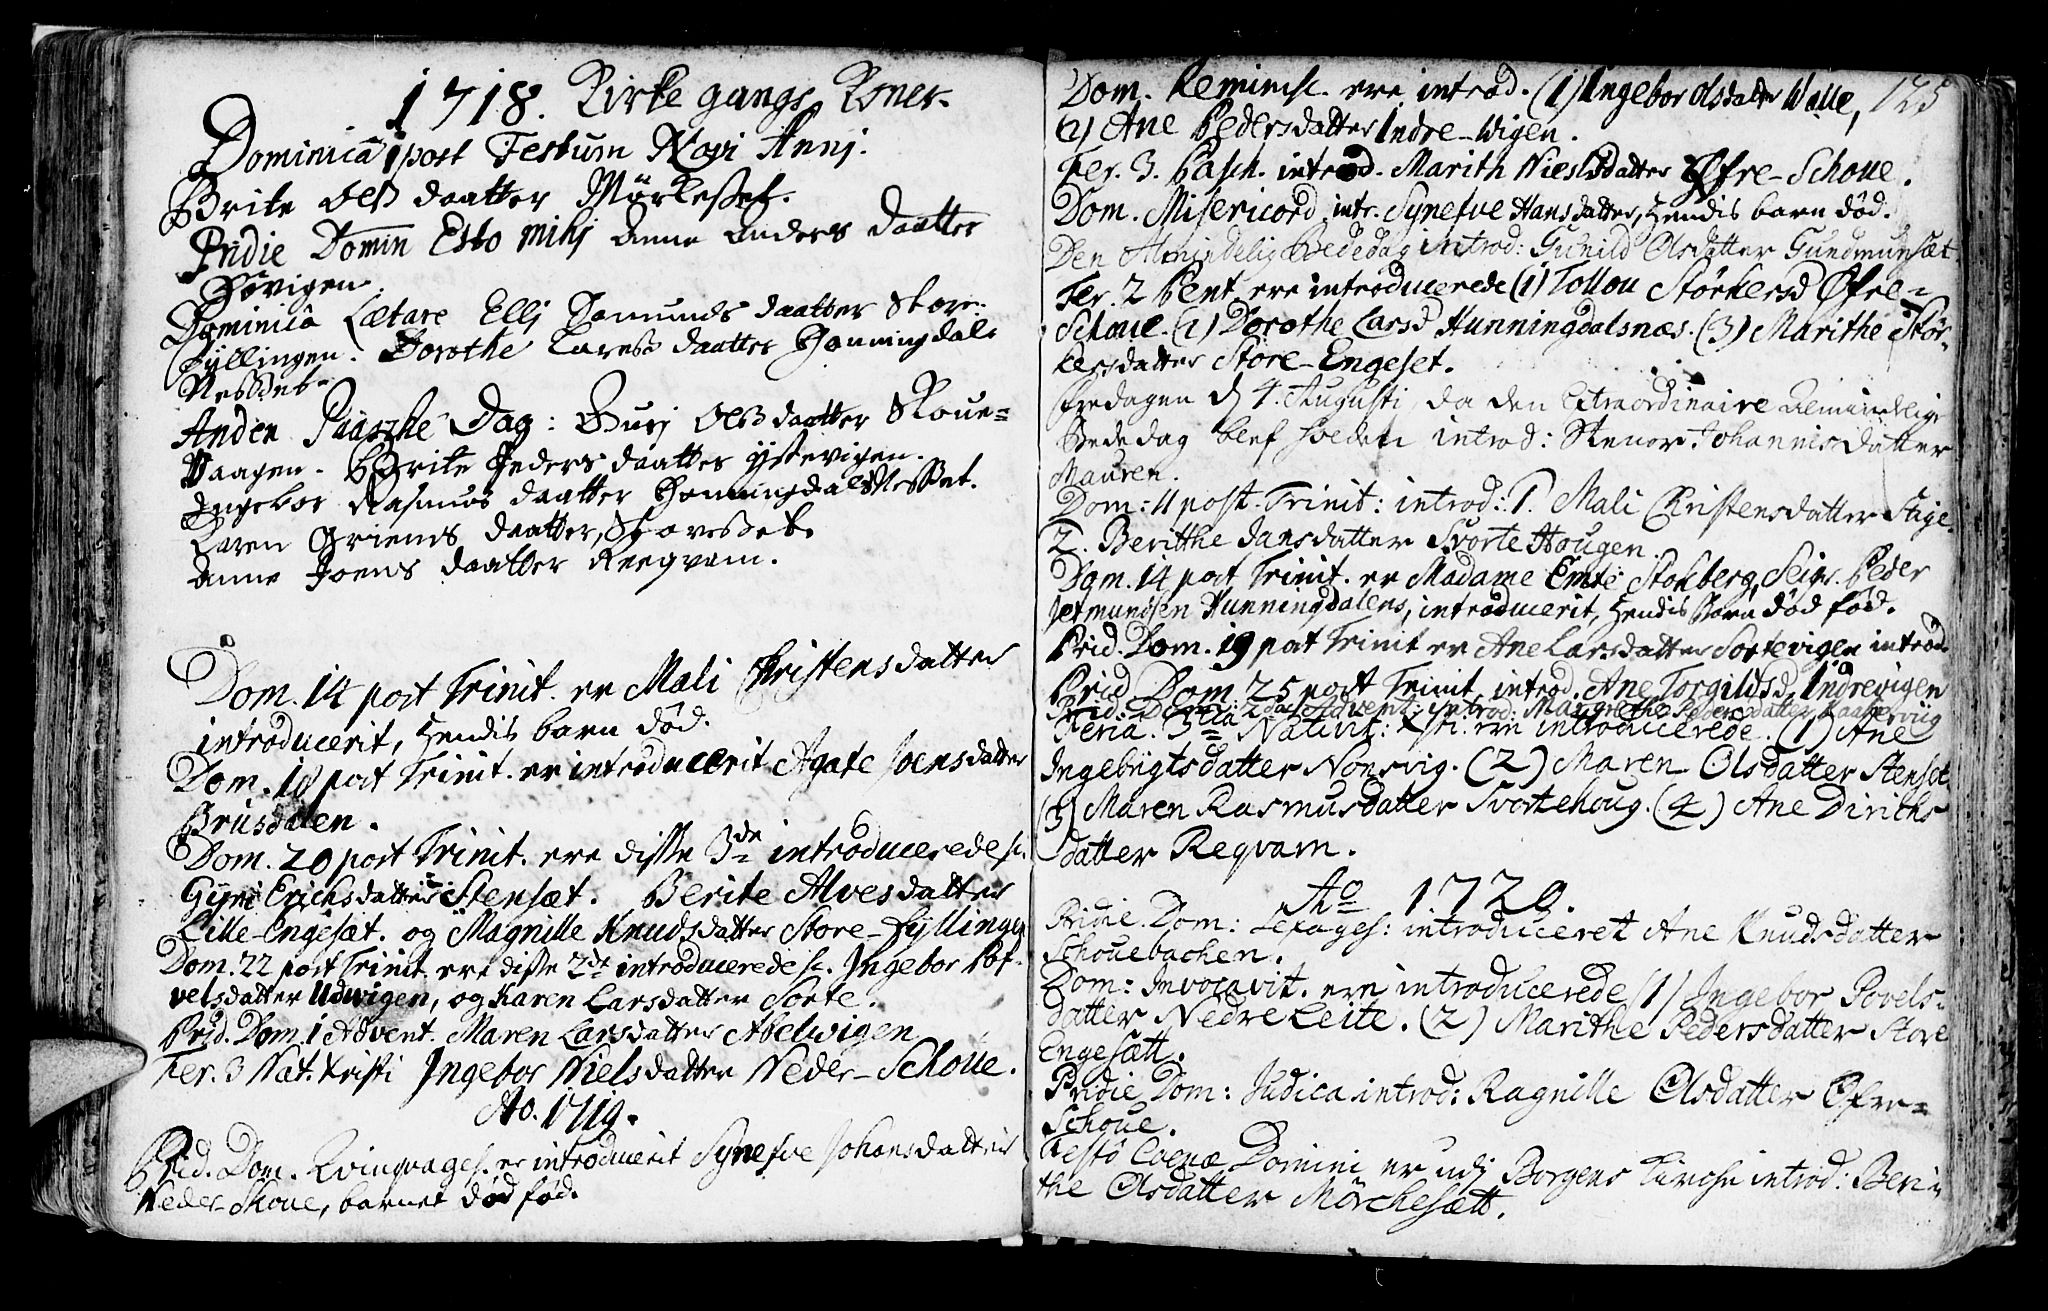 1718. Kirke gangs Koner.
Dominica 1 post Festum Novi Anni.
Brite Olss daatter Mörkesset.
Pridie Domin Esto mihi Anne Anders daatter
Hovigen.
Dominica Lætare Elli Jomunds daatter Store-
Fyllingen. Dorothe Larss daatter Honningdals
Nesset.
Anden Paasche Dag: Guri Olss daatter Skoue=
Haagen. Brite Peders daatter Ystevigen.
Ingebor Rasmus daatter Honningdals Nesset.
Karen Griems daatter,
Anne Joens daatter Reegvam.
Dom. 14 post Trinit. er Mali Christensdatter
introducerit, hendis barn död.
Dom. 18 post Trinit. er introducerit Agate Joensdatter
Brusdalen.
Dom. 20 post Trinit. ere disse 3de introducerede sc.
Gyri Erichsdatter Stensæt. Berite Alvesdatter
Lille-Engesæt. og Magnille Knudsdatter Store-Fyllingen
Dom. 22 post Trinit. ere disse 2de introducerede sc. Ingebor Pof-
velsdatter Udvigen, og Karen Larsdatter Sorte.
Prid. Dom. 1 Advent. Maren Larsdatter Abelwigen
Fer. 3 Nat. Kristi Ingebor Nielsdatter Neder-Schoue.
Ao. 1719.
Prid. Dom. Qvinqvages. er introducerit Synefve Johansdatter
Neder-Skoue, barnet död fød.
Dom. Reminisc. ere introd. (1) Ingebor Olsdatter Walle, 125
(2) Ane Pedersdatter Indre-Wigen.
Fer. 3. Pasch. introd. Marith Nielsdatter Øfre-Schoue.
Dom. Misericord. intr. Synefve Hansdatter, hendis barn död.
Den Almindelig Bededag introd: Gunild Olsdatter Gundmunsæt
Fer. 2 Pent ere introducerede (1) Tollou Störkersd Øfre-
Schoue. (2) Dorothe Larsd Hunningdalsnæs. (3) Marithe Stör-
kersdatter Store-Engeset.
Fredagen d 4. Augusti, da den Extraordinaire Almindelige
Bededag blef holden introd: Stenor Johannisdatter
Mauren.
Dom: 11 post Trinit: introd: 1. Mali Christensdatter Stige.
2. Berithe Jansdatter Svorte Haugen.
Dom. 14 post Trinit. er Madame Emte Stokberg, Seigr. Peder
Jetmundsen Hunningdalens, introducerit, hendis barn död fød.
Prid. Dom. 19 post Trinit er Ane Larsdatter Sortevigen introd.
Prid Dom 25 post Trinit introd. Ane Torgildsd Indrevigen
Prid: Dom: 2da Advent: introd: Margrethe Pedersdatter
Feria. 3tia Nativit: Xsti: ere introducerede. (1) Ane
Ingebrigtsdatter Nonsvig. (2) Maren Olsdatter Stenset
(3) Maren Rasmusdatter Svortehoug. (4) Ane Dirichs
datter Reqvam.
Ao 1720.
Pridie Dom: Sexages: introduceret Ane Knudsdatter
Schouebachen.
Dom: Invocavit. ere introducerede (1) Ingebor Povels-
datter Nedre Leite. (2) Marithe Pedersdatter Store
Engesætt.
Pridie Dom: Judica introd: Ragnille Olsdatter Øfre-
Schoue.
Festo Coenæ Domini er udj Borgens Kirche introd: Beri-
the Olsdatter Mörchesætt.